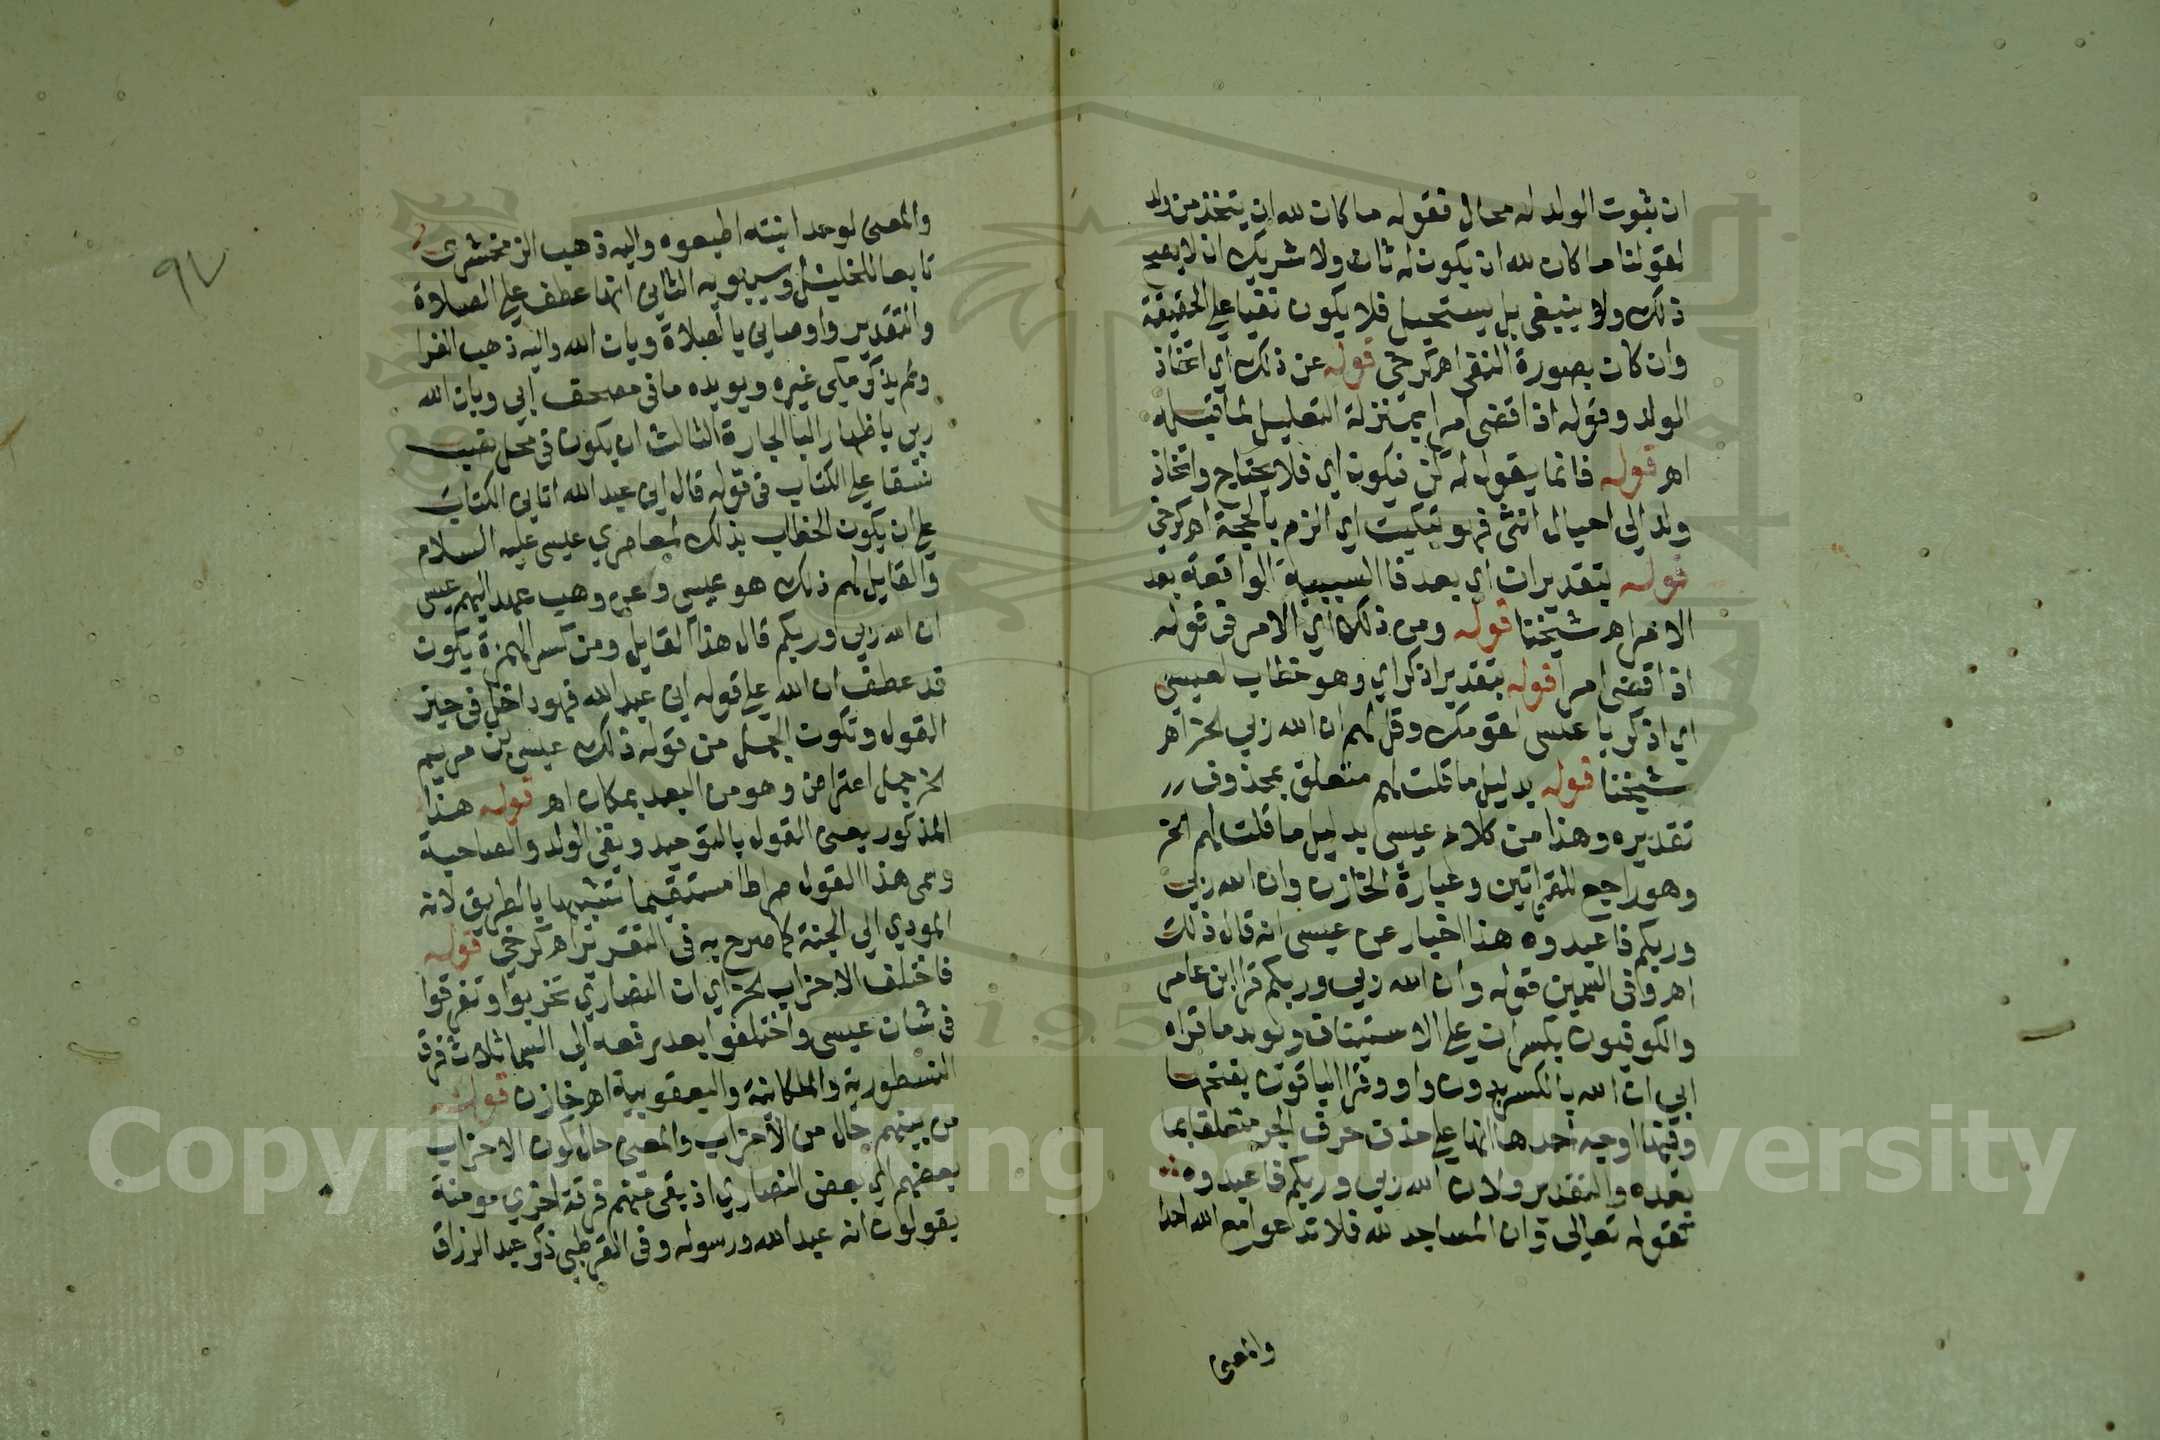 ان ثبوت الولد له محال فقوله ما كان لله ان يتخذ من ولد
كقولنا ما كان لله ان يكون له ثان ولا شريك اي لا يصح
ذلك ولا ينبغي بل يستحيل فلا يكون نفيا على الحقيقة
وان كان بصورة النفي اهـ كرخي قوله عن ذلك اي اتخاذ
الولد وقوله اذا قضى امرا بمنزلة التعليل لما قبله
اهـ قوله فانما يقول له كن فيكون اي فلا يحتاج واتخاذ
ولد الى احبال انثى فهو تبكيت اي الزم بالحجة اهـ كرخي
قوله بتقدير ان اي بعد فا السببية الواقعة بعد
الامر اهـ شيخنا قوله ومن ذلك اي الامر في قوله
اذا قضى امرا قوله بتقدير اذكر اي وهو خطاب لعيسى
اي اذكر يا عيسى لقومك وقل لهم ان الله ربي الخ اهـ
شيخنا قوله بدليل ما قلت لهم متعلق بمحذوف
تقديره وهذا من كلام عيسى بدليل ما قلت لهم الخ
وهو راجع للقراتين وعبارة الخازن وان الله ربي
وربكم فاعبدوه هذا اخبار عن عيسى انه قال ذلك
اهـ وفي السمين قوله وان الله ربي وربكم قرا ابن عامر
والكوفيون بكسر ان على الاستيناف ويويده ما قراه
ابي ان الله بالكسر بدون واو وقرا الباقون بفتحها
وفيها اوجه احدها انها على حذف حرف الجر متعلقا بما
بعده والتقدير ولان الله ربي وربكم فاعبدوه
كقوله تعالى وان المساجد لله فلا تدعوا مع الله احدا
والمعنى
٩٧
والمعنى لوحدانيته اطيعوه واليه ذهب الزمخشري
تابعا للخليل وسيبويه الثاني انها عطف على الصلاة
والتقدير واوصاني بالصلاة وبان الله واليه ذهب الفرا
ولم يذكر مكي غيره ويويده ما في مصحف ابي وبان الله
ربي باظهار البا الجارة الثالث ان يكون في محل نصب
نسقا على الكتاب في قوله قال اني عبد الله اتاني الكتاب
على ان يكون الخطاب بذلك لمعاصري عيسى عليه السلام
والقايل لهم ذلك هو عيسى وعن وهب عهد اليهم عيسى
ان الله ربي وربكم قال هذا القايل ومن كسر الهمزة يكون
قد عطف ان الله على قوله اني عبد الله فهو داخل في حيز
القول وتكون الجمل من قوله ذلك عيسى بن مريم
الخ جمل اعتراض وهو من البعد بمكان اهـ قوله هذا
المذكور يعني القول بالتوحيد ونفي الولد والصاحبة
وسمى هذا القول صراطا مستقيما تشبيها بالطريق لانه
المودي الى الجنة كما صرح به في التقرير اهـ كرخي قوله
فاختلف الاحزاب الخ اي ان النصاري تحزبوا وتفرقوا
في شان عيسى واختلفوا بعد رفعه الى السما ثلاث فرق
النسطورية والملكانية واليعقوبية اهـ خازن قوله
من بينهم حال من الاحزاب والمعنى حال كون الاحزاب
بعضهم اي بعض النصاري اذ بقي منهم فرقة اخري مومنة
يقولون انه عبد الله ورسوله وفي القرطبي ذكر عبد الرزاق
Copyright © King Saud University